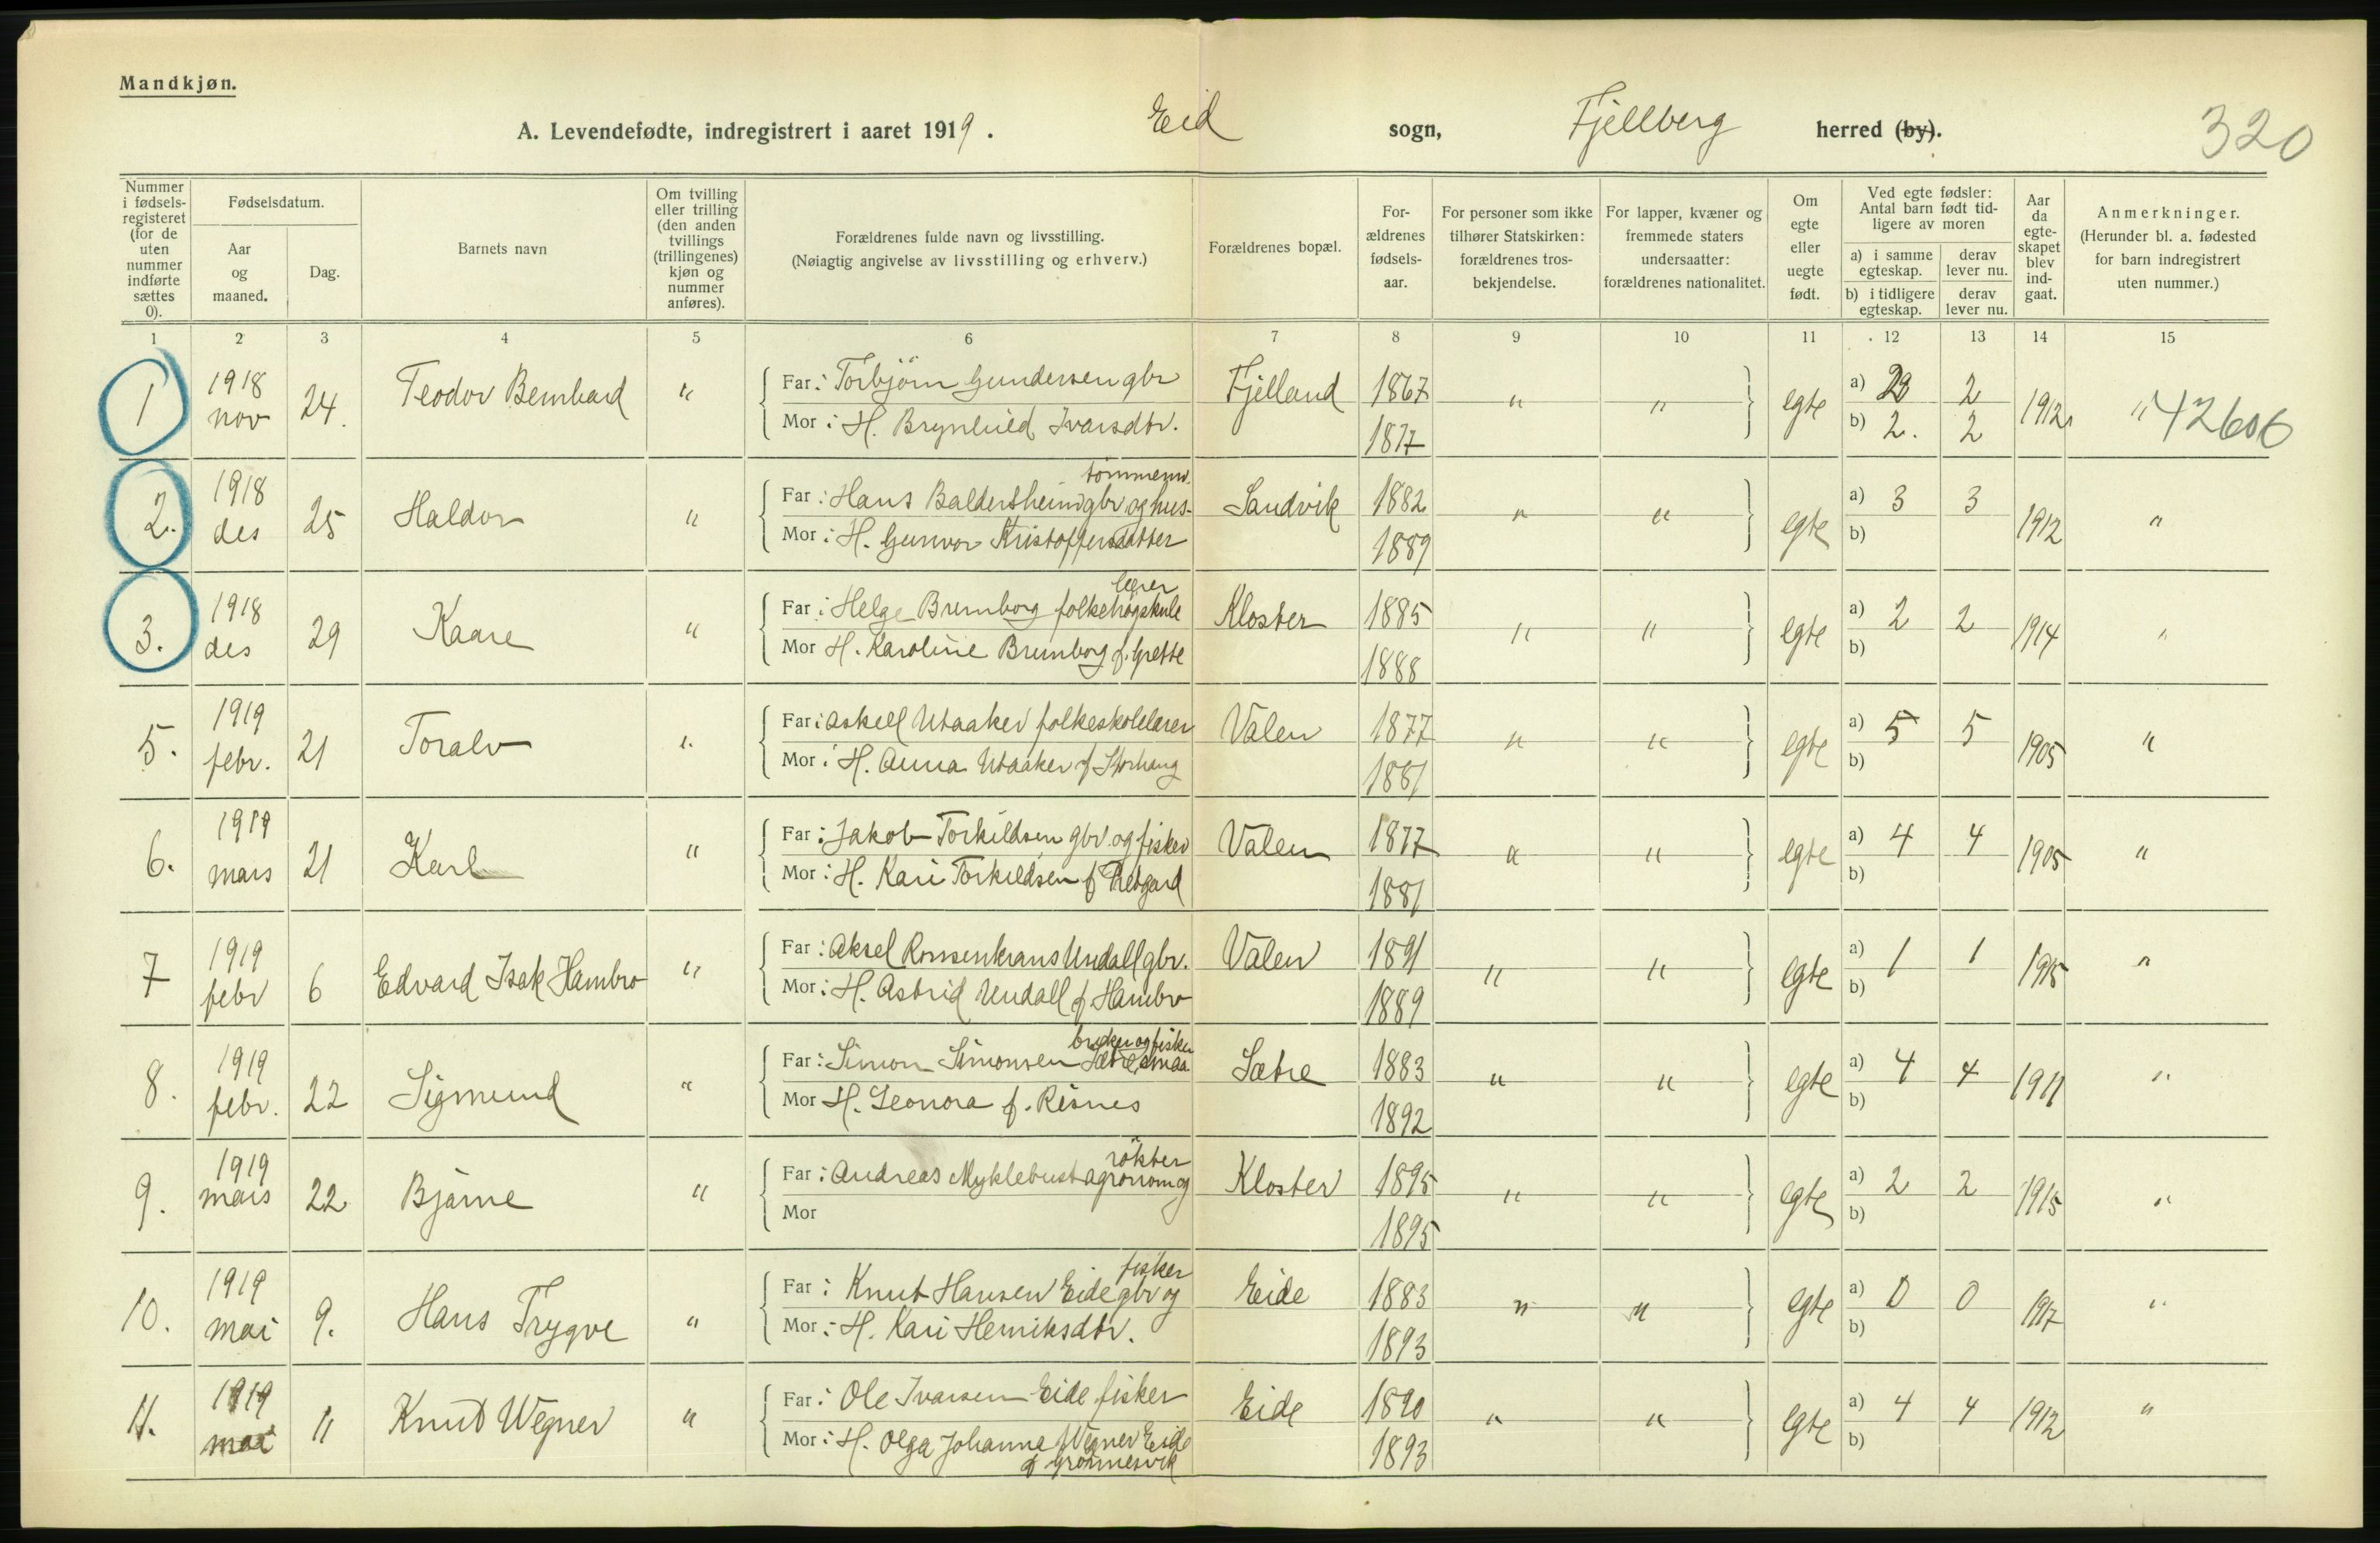 Mandkjøn.
A. Levendefødte, indregistrert i aaret 1919. Eid sogn, Fjellberg herred (by). 320
Nummer i fødselsregisteret (for de uten nummer indførte sættes 0).
Fødselsdatum.
Aar og maaned.
Dag.
Barnets navn
Om tvilling eller trilling (den anden tvillings (trillingenes) kjøn og nummer anføres).
Forældrenes fulde navn og livsstilling.
(Nøiagtig angivelse av livsstilling og erhverv.)
Forældrenes bopæl.
Forældrenes fødselsaar.
For personer som ikke tilhører Statskirken: forældrenes trosbekjendelse.
For lapper, kvæner og fremmede staters undersaatter: forældrenes nationalitet.
Om egte eller uegte født.
Ved egte fødsler: Antal barn født tidligere av moren
a) i samme egteskap.
derav lever nu.
b) i tidligere egteskap.
derav lever nu.
Aar da egteskapet blev indgaat.
Anmerkninger.
(Herunder bl. a. fødested for barn indregistrert uten nummer.)
1 2 3 4 5 6 7 8 9 10 11 12 13 14 15
1 1918 nov 24. Teodor Bernhard " Far: Torbjörn Gundersen gbr Fjelland 1867 " " egte a) 2 2 1912 " 42606
Mor: H. Brynhild Ivarsdtr. 1877 b) 2. 2
2. 1918 des 25 Haldor " Far: Hans Baldersheim gbr og hustömmerm. Sandvik 1882 " " egte a) 3 3 1912 "
Mor: H. Gunvor Kristoffersdatter 1889 b)
3. 1918 des 29 Kaare " Far: Helge Bremborg folkehøgskulelærer Kloster 1885 " " egte a) 2 2 1914 "
Mor H. Karoline Bremborg f. Grette 1888 b)
5. 1919 febr. 21 Toralv " Far: Askell Utaaker folkeskolelærer Valen 1877 " " egte a) 5 5 1905 "
Mor: H. Anna Utaaker f Storhaug 1881 b)
6. 1919 mars 21 Karl " Far: Jakob Torkildsen gbr og fisker Valen 1877 " " egte a) 4 4 1905 "
Mor: H. Kari Torkildsen f 1881 b)
7 1919 febr 6 Edvard Isak Hambro " Far: Aksel Ronsenkrans Undall gbr. Valen 1891 " " egte a) 1 1 1915 "
Mor: H. Astrid Undall f Hambro 1889 b)
8. 1919 febr. 22 Sigmund " Far: Simon Simonsen Sætre smaabruker og fisker Sætre 1883 " " egte a) 4 4 1911 "
Mor H. Leonora f. Risnes 1892 b)
9. 1919 mars 22 Bjarne " Far: Andreas Myklebust agronom og rökter Kloster 1895 " " egte a) 2 2 1915 "
Mor 1895 b)
10. 1919 mai 9. Hans Trygve " Far: Knut Hansen Eide gbr og fisker Eide 1883 " " egte a) 0 0 1917 "
Mor: H. Kari Henriksdtr. 1893 b)
11. 1919 mai 11 Knut Wegner " Far: Ole Ivarsen Eide fisker Eide 1890 " " egte a) 4 4 1912 "
Mor: H. Olga Johanna Wegner Eide f Grönnesvik 1893 b)